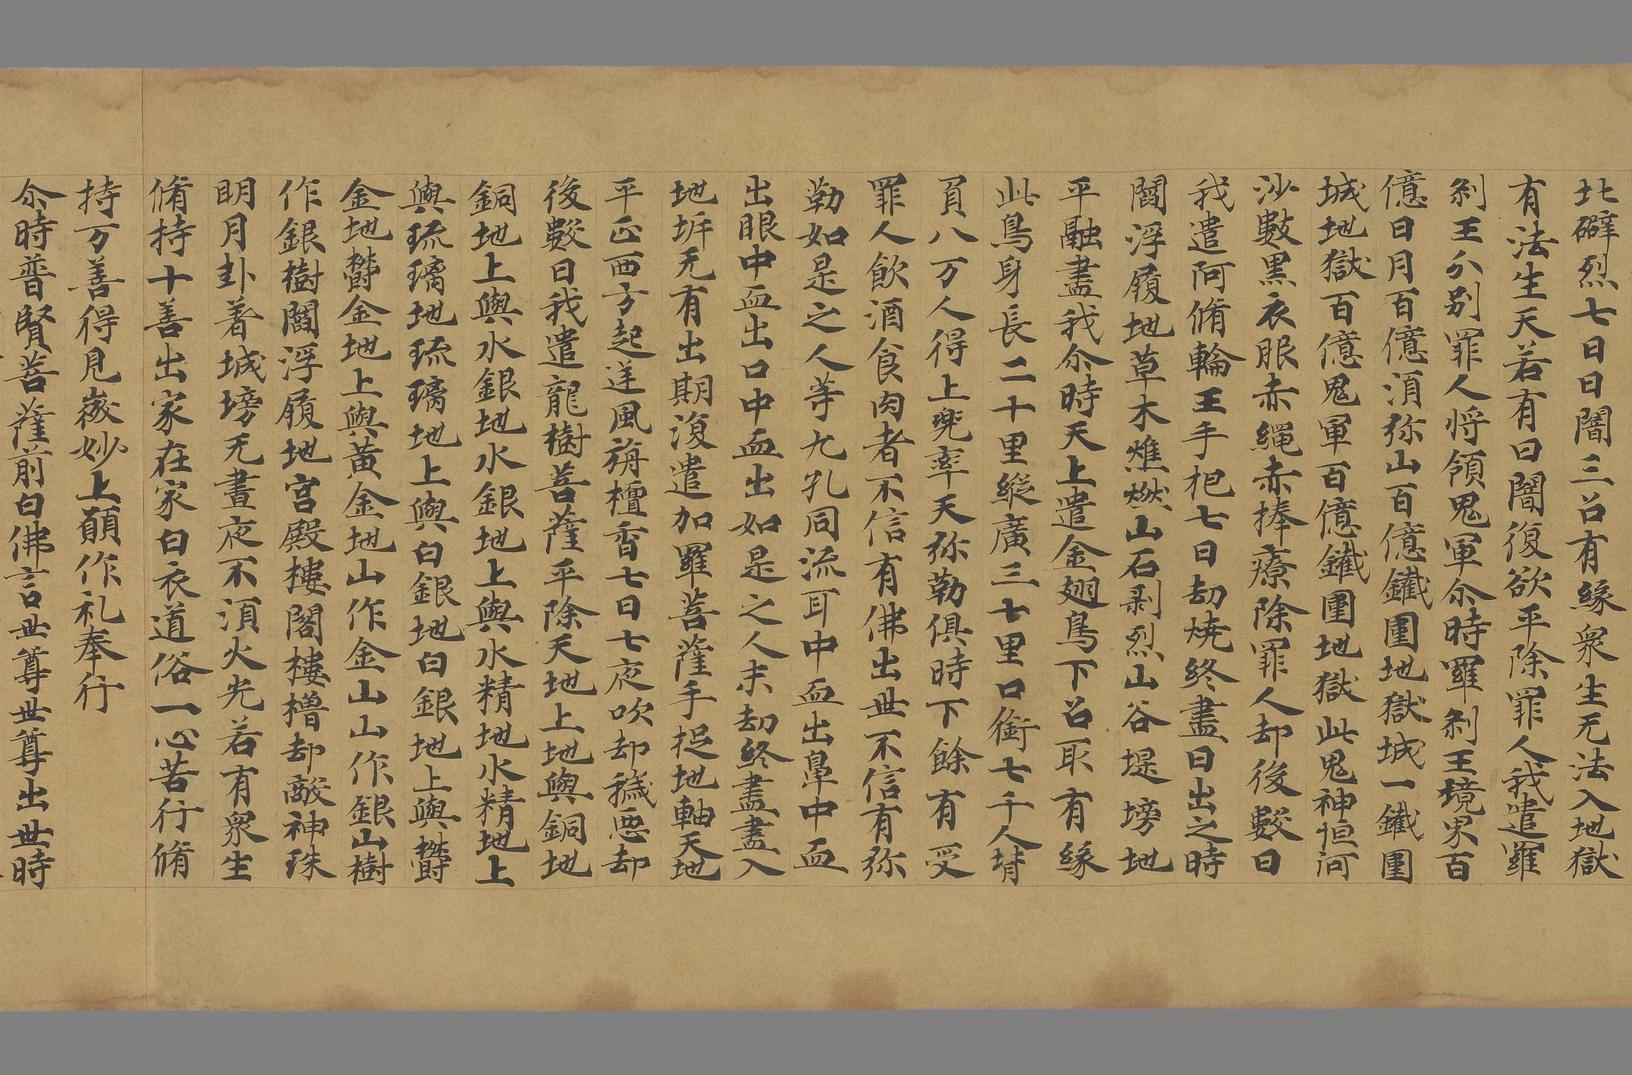 北礔烈七日日闇三召有緣眾生无法入地獄
有法生天若有日闇復欲平除罪人我遣羅
刹王分別罪人将領鬼軍尒時羅刹王境界百
億日月百億湏弥山百億鐵圍地獄城一鐵圍
城地獄百億鬼軍百億鐵圍地獄此鬼神恒河
沙數黒衣眼赤繩赤捧療除罪人却後數日
我遣阿脩輪王手杷七日劫燒終盡日出之時
閻浮履地草木燋燃山石剥烈山谷堤塝地
平融盡我尒時天上遣金翅鳥下召取有緣
此鳥身長二十里縱廣三七里口銜七千人背
負八万人得上兜率天弥勒俱時下餘有受
罪人飲酒食肉者不信有佛出世不信有弥
勒如是之人等九孔同流耳中血出鼻中血
出眼中血出口中血出如是之人末劫終盡盡入
地坼无有出期復遣加羅菩薩手捉地軸天地
平正西方起迬風旃檀香七日七夜吹却穢惡却
後數日我遣龍樹菩薩平除天地上地輿銅地
銅地上輿水銀地水銀地上輿水精地水精地上
輿琉璃地琉璃地上輿白銀地白銀地上輿欝
金地欝金地上輿黃金地山作金山山作銀山樹
作銀樹閻浮履地宮殿樓閣樓櫓却敵神珠
明月卦著城塝无晝夜不湏火光若有眾生
脩持十善出家在家白衣道俗一心苦行脩
持万善得見微妙上願作礼奉行
尒時普賢菩薩前白佛言世尊世尊出世時